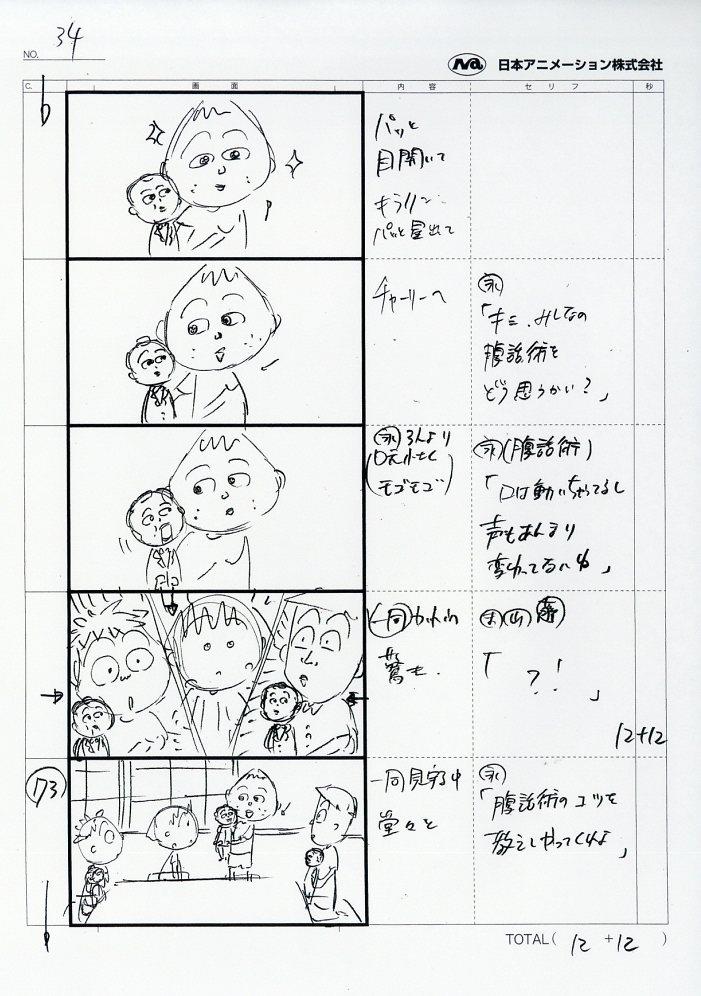 NO. 34
Na 日本アニメーション株式会社
C. 画面 内容 セリフ 秒
パッと
目開いて
キラリン
パッと星出て
チャーリーへ
永
「キミ、みんなの
腹話術を
どう思うかい?」
永
口元小さく
モゴモゴ
永(腹話術)
「口は動いちゃってるし
声もあんまり
変わってないね」
一同カットイン
驚き.
「?!」
12+12
73
一同見守る中
堂々と
永
「腹話術のコツを
教えてやってくれよ」
TOTAL( 12 + 12 )